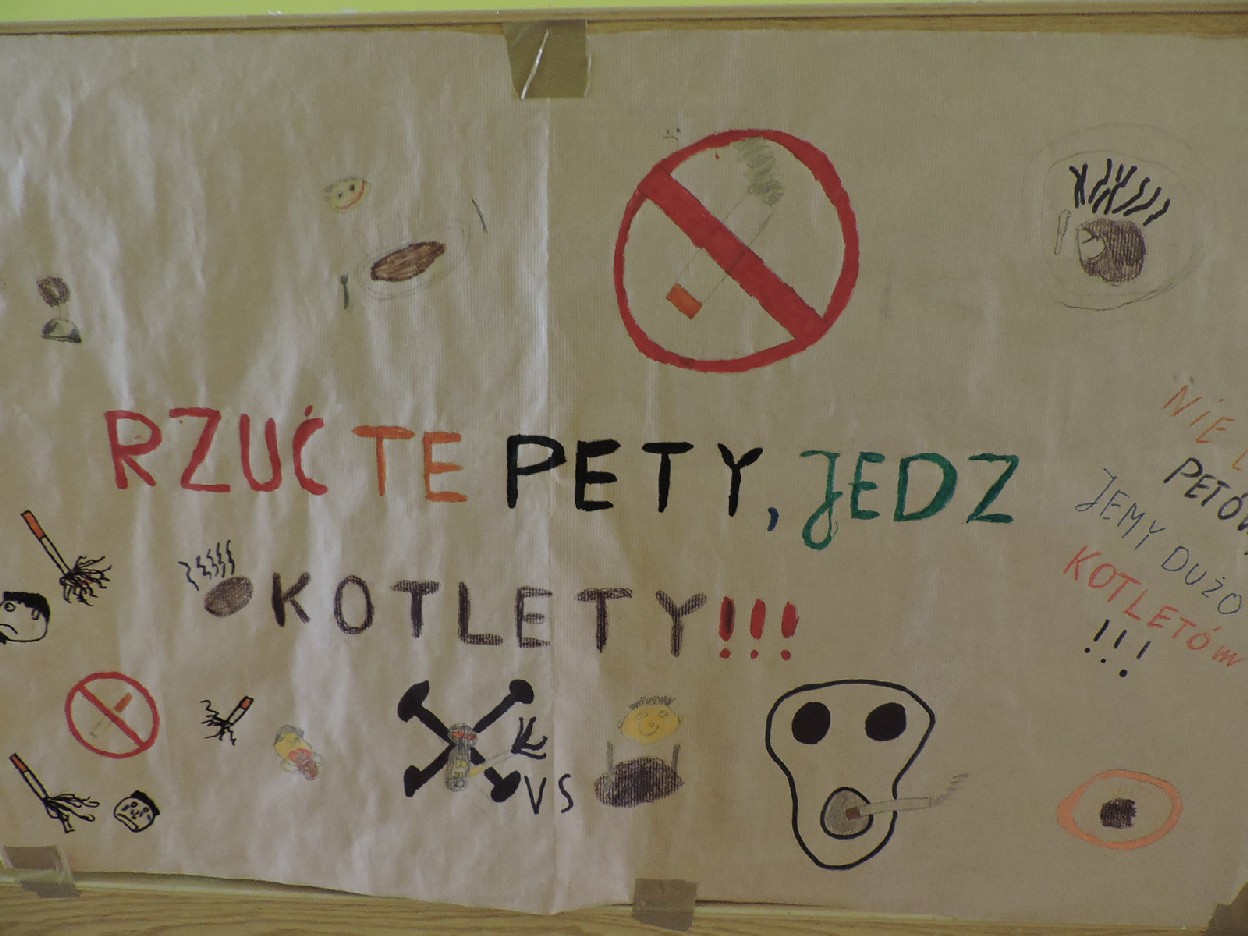 RZUĆ TE PETY, JEDZ
KOTLETY!!!
VS
NIE
JEMY DUŻO
KOTLETÓW
!!!